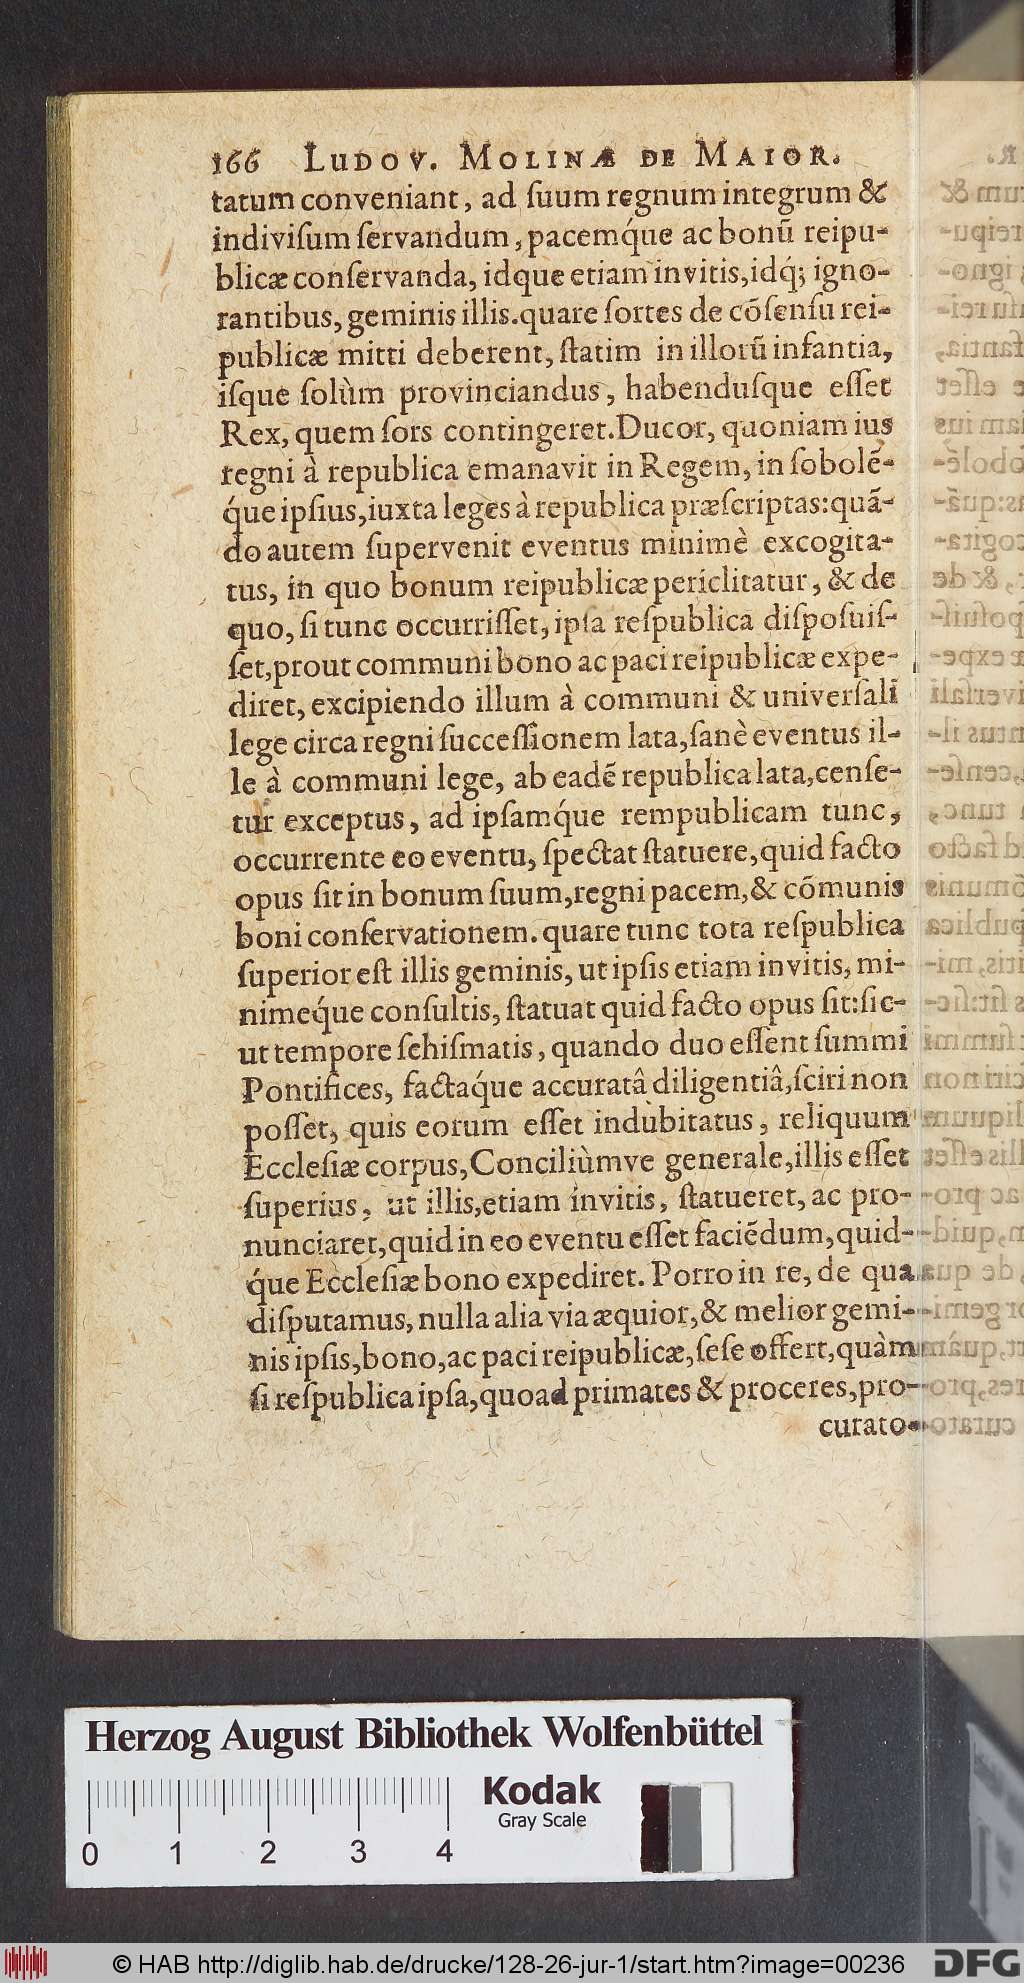 166 LUDOV. MOLINÆ DE MAIOR.
tatum conveniant, ad ſuum regnum integrum &
indiviſum ſervandum, pacemq́ue ac bonũ reipu-
blicæ conſervanda, idque etiam invitis, idq́; igno-
rantibus, geminis illis. quare ſortes de cõſenſu rei-
publicæ mitti deberent, ſtatim in illorũ infantia,
iſque ſolùm provinciandus, habenduſque eſſet
Rex, quem ſors contingeret. Ducor, quoniam ius
regni à republica emanavit in Regem, in ſobolẽ-
q́ue ipſius, iuxta leges à republica præſcriptas: quã-
do autem ſupervenit eventus minimè excogita-
tus, in quo bonum reipublicæ periclitatur, & de
quo, ſi tunc occurriſſet, ipſa reſpublica diſpoſuiſ-
ſet, prout communi bono ac paci reipublicæ expe-
diret, excipiendo illum à communi & univerſali
lege circa regni ſucceſſionem lata, ſanè eventus il-
le à communi lege, ab eadẽ republica lata, cenſe-
tur exceptus, ad ipſamq́ue rempublicam tunc,
occurrente eo eventu, ſpectat ſtatuere, quid facto
opus ſit in bonum ſuum, regni pacem, & cõmunis
boni conſervationem. quare tunc tota reſpublica
ſuperior eſt illis geminis, ut ipſis etiam invitis, mi-
nimeq́ue conſultis, ſtatuat quid facto opus ſit: ſic-
ut tempore ſchiſmatis, quando duo eſſent ſummi
Pontifices, factaq́ue accuratâ diligentiâ, ſciri non
poſſet, quis eorum eſſet indubitatus, reliquum
Eccleſiæ corpus, Conciliùmve generale, illis eſſet
ſuperius, ut illis, etiam invitis, ſtatueret, ac pro-
nunciaret, quid in eo eventu eſſet faciẽdum, quid-
q́ue Eccleſiæ bono expediret. Porro in re, de qua
diſputamus, nulla alia via æquior, & melior gemi-
nis ipſis, bono, ac paci reipublicæ, ſeſe offert, quàm
ſi reſpublica ipſa, quoad primates & proceres, pro-
curato-
Herzog August Bibliothek Wolfenbüttel
Kodak
Gray Scale
0 1 2 3 4
© HAB http://diglib.hab.de/drucke/128-26-jur-1/start.htm?image=00236
DFG